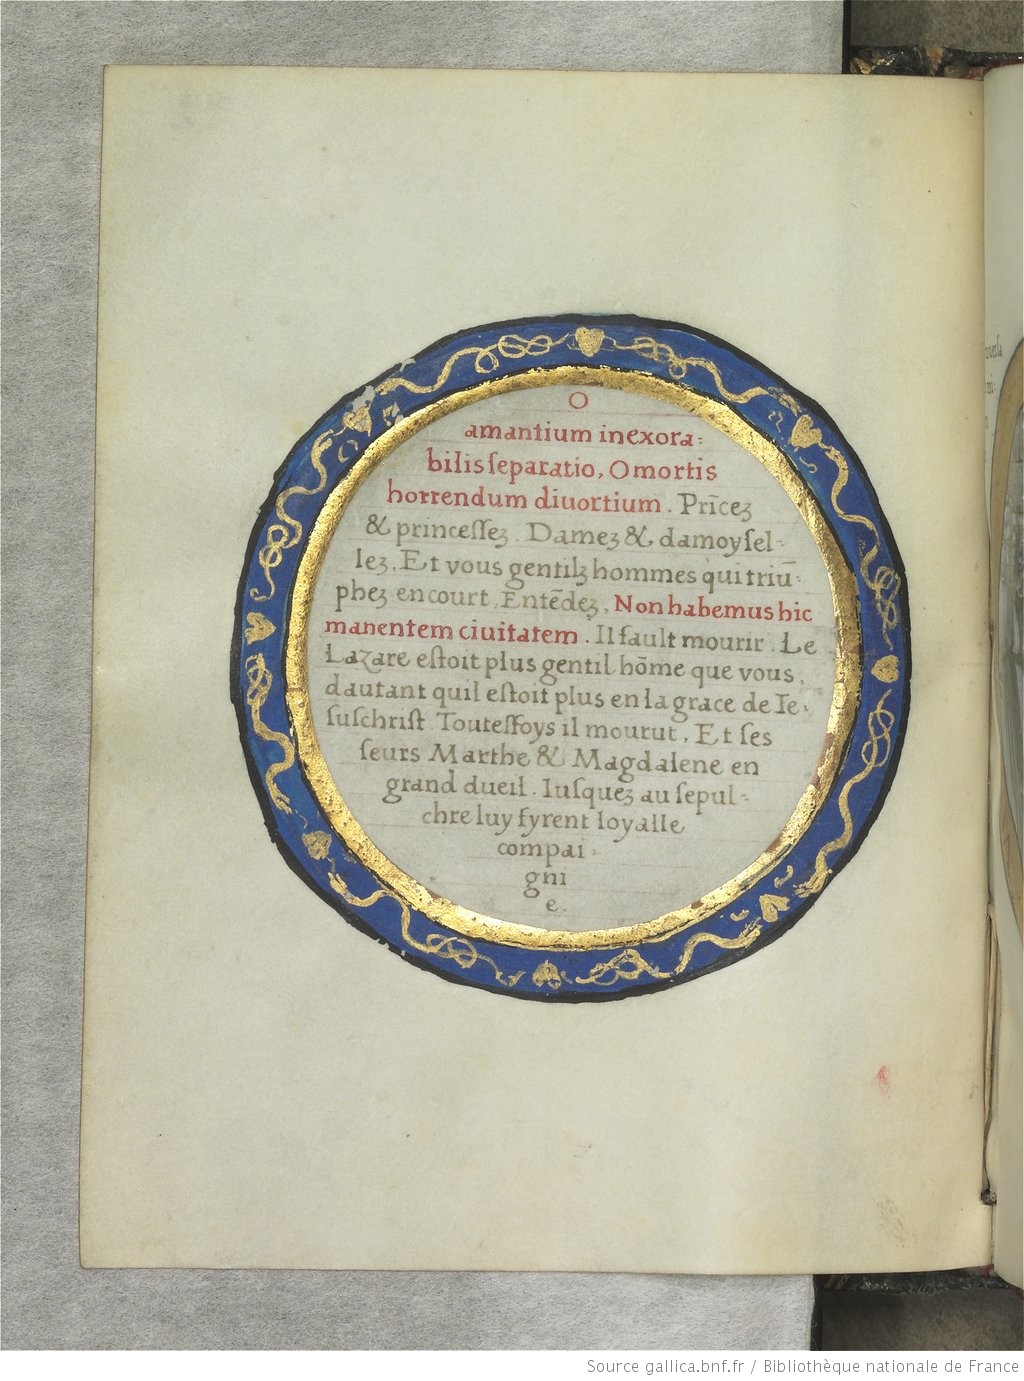 O
amantium inexora-
bilis ſeparatio, O mortis
horrendum diuortium. Prīcez
& princeſſez. Damez & damoyſel-
lez. Et vous gentilz hommes qui triū-
phez en court. Entēdez, Non habemus hic
manentem ciuitatem. Il fault mourir. Le
Lazare eſtoit plus gentil hōme que vous,
dautant quil eſtoit plus en la grace de Ie-
ſuſchriſt Touteſſoys il mourut. Et ſes
ſeurs Marthe & Magdalene en
grand dueil. Iuſquez au ſepul-
chre luy fyrent loyalle
compai-
gni
e.
Source gallica.bnf.fr / Bibliothèque nationale de France